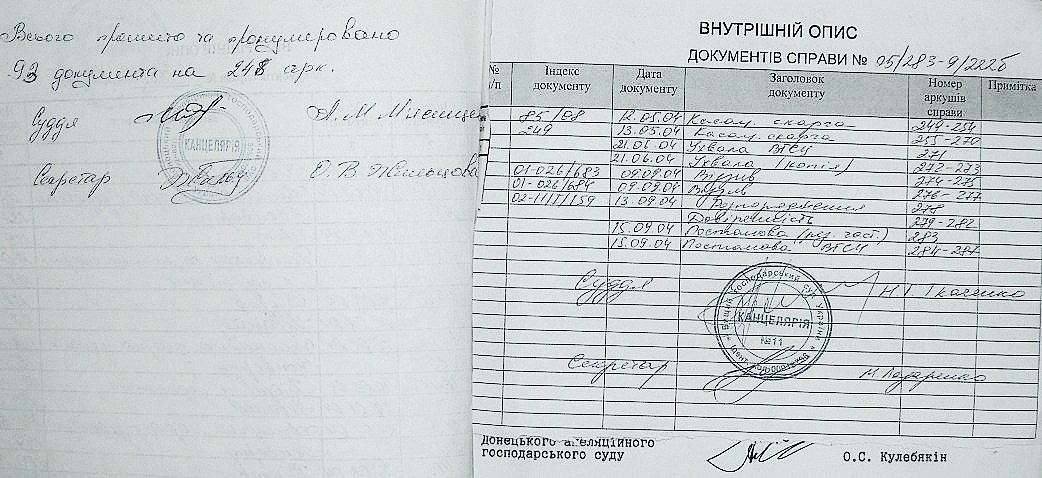 Всього прошито та пронумеровано
93 документа на 248 арк.
Суддя А.М.
КАНЦЕЛЯРІЯ
Секретар О.В.
ВНУТРІШНІЙ ОПИС
ДОКУМЕНТІВ СПРАВИ № 05/283-9/222б
№ п/п Індекс документу Дата документу Заголовок документу Номер аркушів справи Примітка
85/08 12.05.04 Касац. скарга 249-254
249 13.05.04 Касац. скарга 255-270
21.06.04 Ухвала ВГСУ 271
21.06.04 Ухвала (копія) 272-273
01-026/683 09.09.04 Відзив 274-275
01-026/684 09.09.04 Відзив 276-277
02-11/1/159 13.09.04 Розпорядження 278
Довіреність 279-282
15.09.04 Постанова (рез. част.) 283
15.09.04 Постанова ВГСУ 284-287
Суддя Н.Г. Ткаченко
Вищий господарський суд України
КАНЦЕЛЯРІЯ
№11
Секретар М. Лазаренко
Донецького апеляційного
господарського суду О.С. Кулебякін